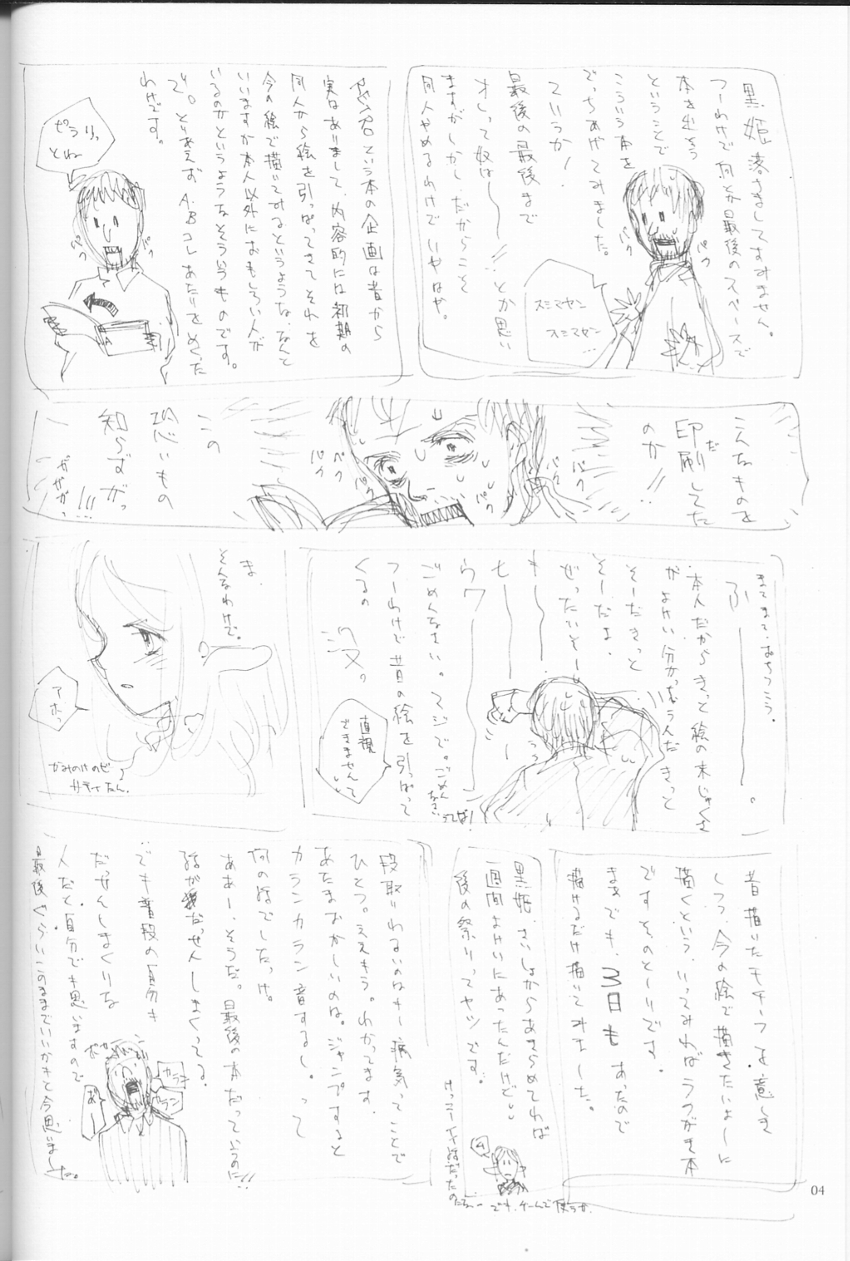 黒姫落ちましてすみません。
つーわけで何とか最後のスペースで
本を出そう
ということで
こういう本を
でっちあげてみました。
ていうか!
最後の最後まで
オレって奴はーー!!とか思い
ますがしかし、だからこそ
同人やめるわけで いやはや。
パク
パク
スミマセン
スミマセン
…
という本の企画は昔から
実はありまして、内容的には初期の
同人から絵を引っぱってきてそれを
今の絵で描いてみるというような、なんと
いいますか本人以外におもしろい人が
いるのかというようなそういうものです。
で。とりあえず A.Bコレあたりをめくった
わけです。
ピラリっ
とねー
パク
パク
A
こんなものを
印刷してた
だ
のか!!
パク
パク
パク
パク
パク
パク
この
恐いもの
知らずがっ
!!!
まてまて、おちつこう。
ふーーー。
本人だからきっと絵の未じゅくさ
がよけい分かっちゃうんだ きっと
そーだきっと
そーだよ、
ぜったいそー
キーー
モーー
うワーー
ごめんなさい。マジで。ごめん
なさい
ってば!
つーわけで昔の絵を引っぱって
くるの
没っ
直視
できませんて
ま、
そんなわけで。
アホっ
かみのけのピ
サティたん。
昔描いたモチーフを意しき
しつつ、今の絵で描きたいよーに
描くという、いってみればらくがき本
です そのとーりです。
まあでも、3日もあったので
描けるだけ描いてみました。
黒姫、さいしょからあきらめてれば
一週間よけいにあったんだけど。
後の祭りってヤツです。
ム
でも、ゲームで使うか。
段取りわるいのはもー病気ってことで
ひとつ。ええもう。わかってます。
あたまおかしいのは。ジャンプすると
カランカラン音するし。って
何の話でしたっけ。
ああー、そうだ。最後の本だっていうのに!!
話がだっせんしまくってる。
でも普段の自分も
だっせんしまくりな
人だと自分でも思いますので
最後くらいこのままでいいかもと今思いました。
カラン
カラン
あー
04